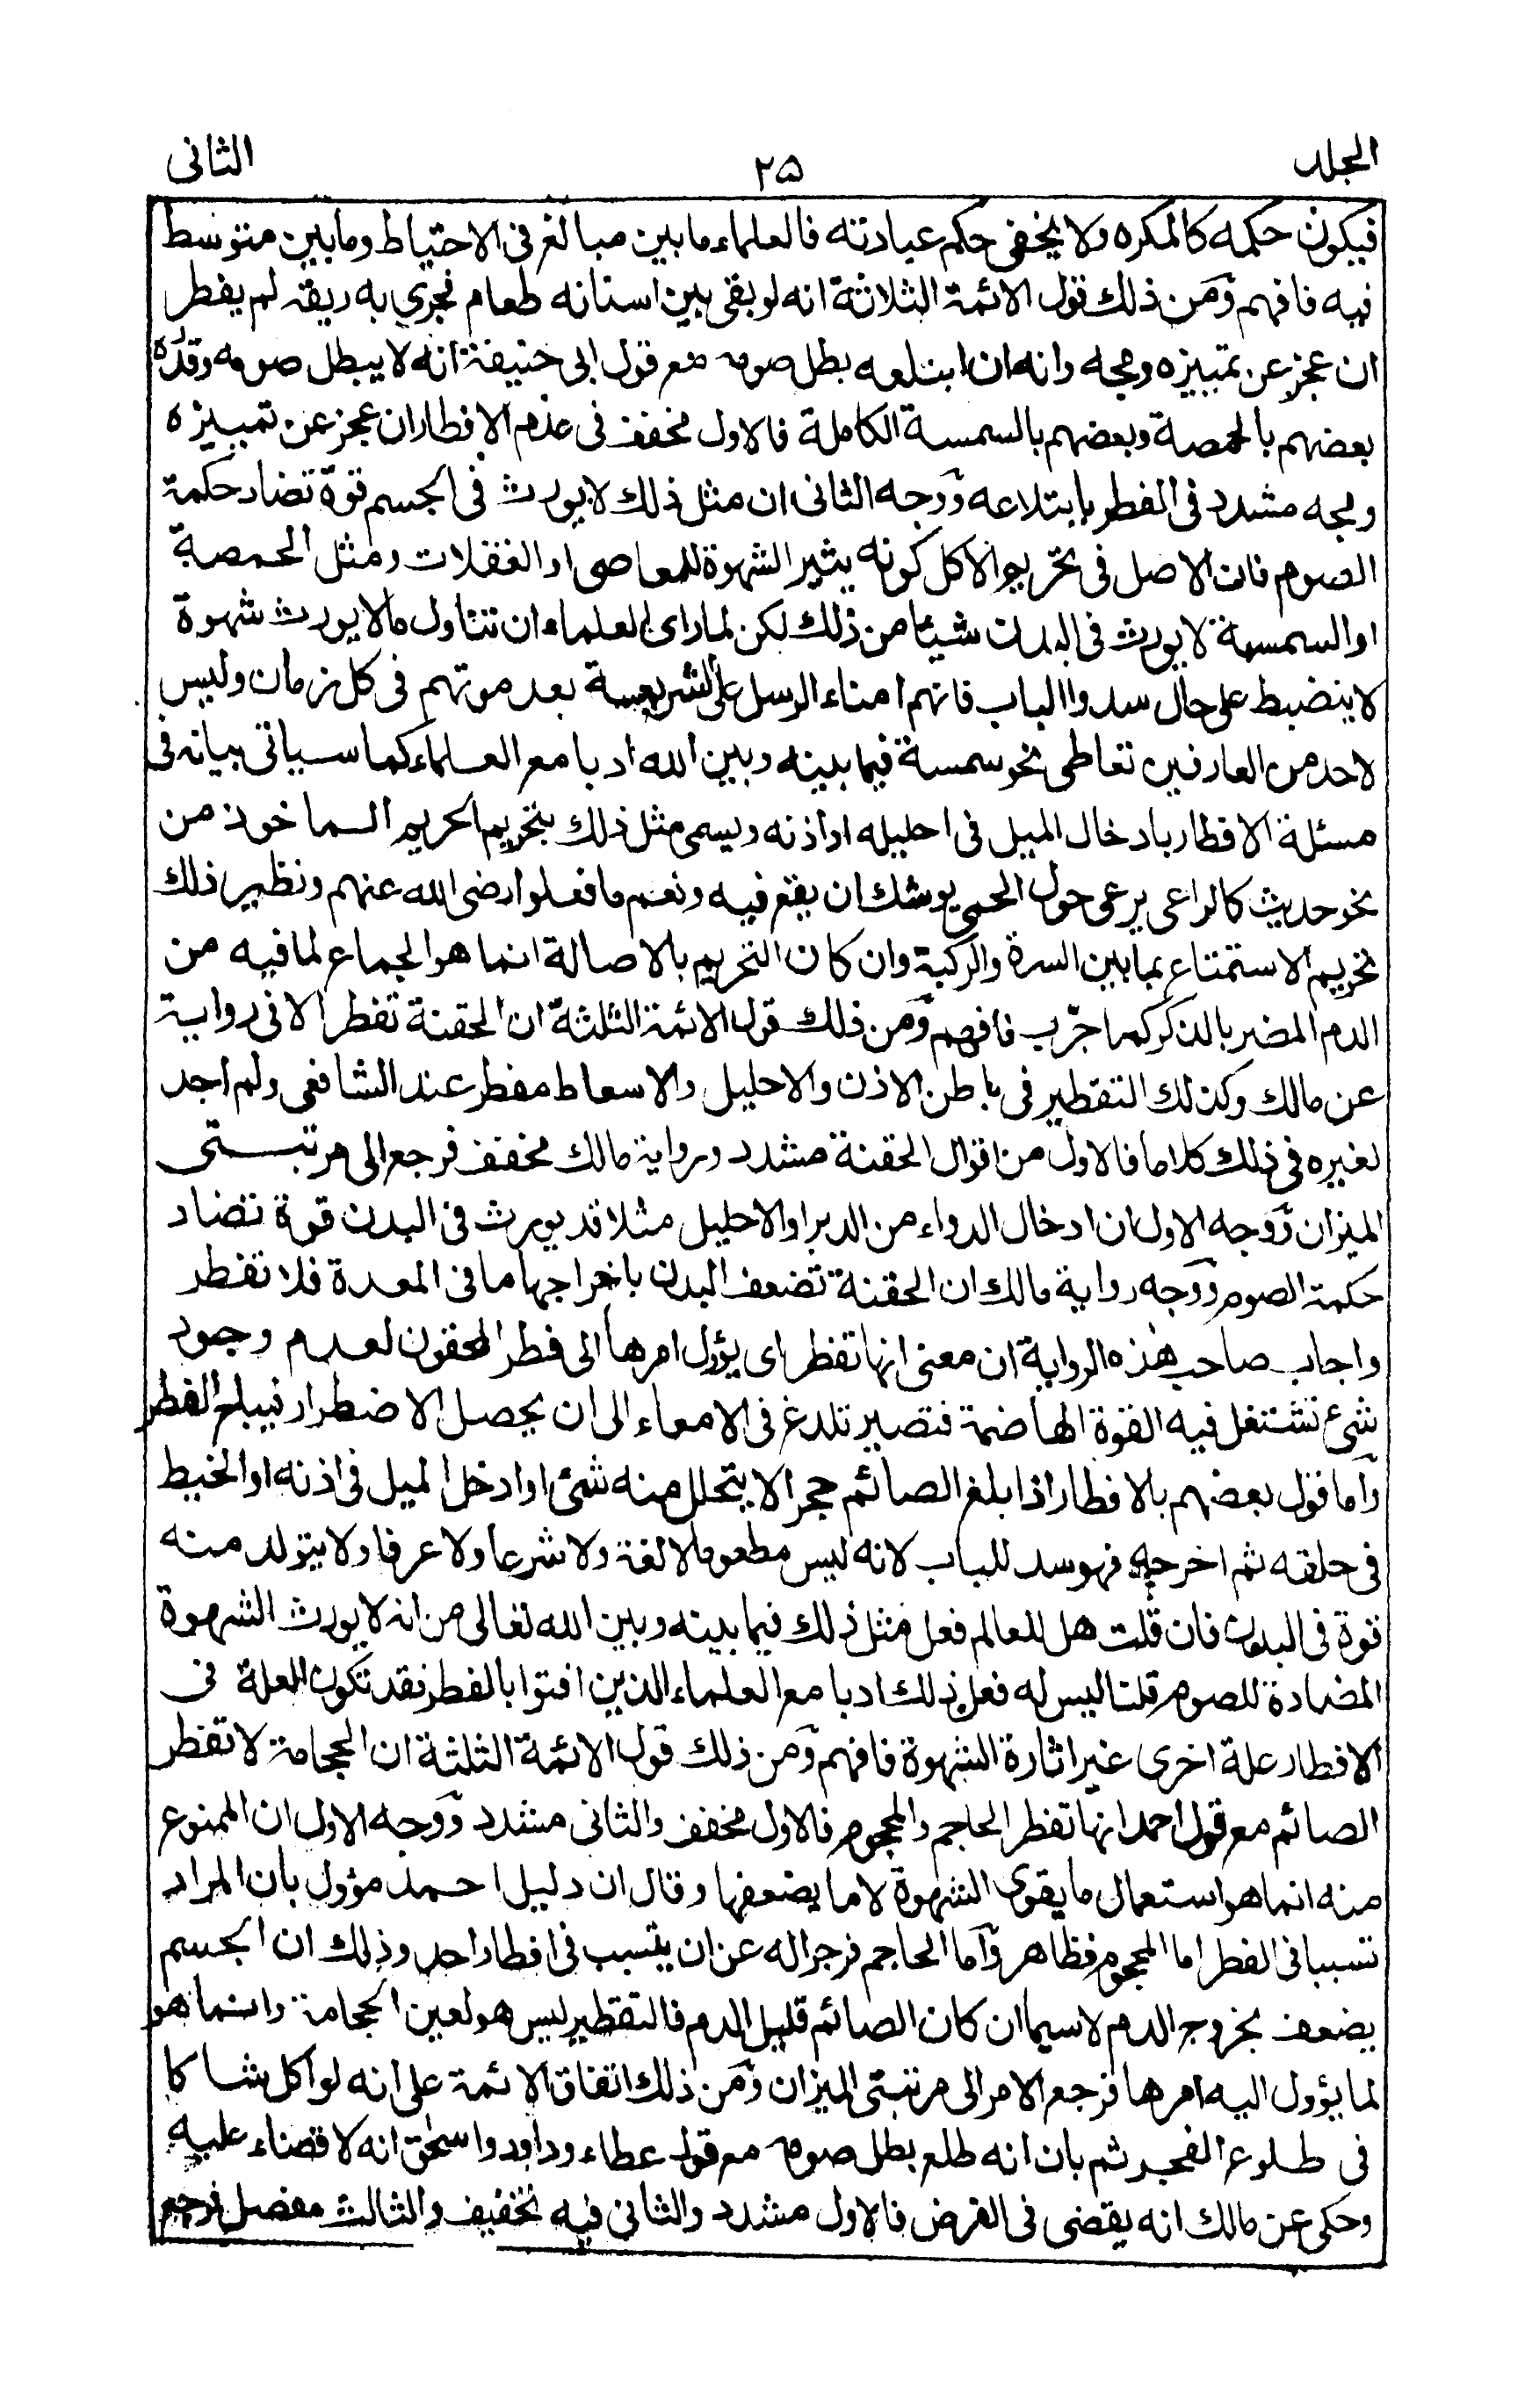 المجلد ٢٥ الثانى
فيكون حكمه كالمكره ولا يخفى حكم عبادته فالعلماء مابين مبالغ فى الاحتياط ومابين متوسط
فيه فافهم ومن ذلك قول الائمة الثلاثة انه لو بقى بين اسنانه طعام فجرى به ريقه لم يفطر
ان عجز عن تمييزه ومجه وانه ان ابتلعه بطل صومه مع قول ابى حنيفة انه لا يبطل صومه وقدره
بعضهم بالحمصة وبعضهم بالسمسة الكاملة فالاول مخفف فى عدم الافطار ان عجز عن تمييزه
ومجه مشدد فى الفطر بابتلاعه ووجه الثانى ان مثل ذلك لا يورث فى الجسم قوة تضاد حكمة
الصوم فان الاصل فى تحريم الاكل كونه يثير الشهوة للمعاصى او الغفلات ومثل الحمصة
او السمسمة لا يورث فى البدن شيئا من ذلك لكن لما راى العلماء ان تتناول مالا يورث شهوة
لا ينضبط على حال سدوا الباب فانهم امناء الرسل على الشريعة بعد موتهم فى كل زمان وليس
لاحد من العارفين تعاطى نحو سمسة فيما بينه وبين الله ادبا مع العلماء كما سياتى بيانه فى
مسئلة الافطار بادخال الميل فى احليله او اذنه ويسمى مثل ذلك بتحريم الحريم الماخوذ من
نحو حديث كالراعى يرعى حول الحمى يوشك ان يقع فيه ونعم ما فعلوا رضى الله عنهم ونظير ذلك
تحريم الاستمتاع بما بين السرة والركبة وان كان التحريم بالاصالة انما هو الجماع لما فيه من
الدم المضر بالذكر كما جرّب فافهم ومن ذلك قول الائمة الثلثة ان الحقنة تفطر الا فى رواية
عن مالك وكذلك التقطير فى باطن الاذن والاحليل والاسعاط مفطر عند الشافعى ولم اجد
لغيره فى ذلك كلاما فالاول من اقوال الحقنة مشدد ورواية مالك مخفف فرجع الى مرتبتى
الميزان ووجه الاول ان ادخال الدواء من الدبر او الاحليل مثلا قد يورث فى البدن قوة تضاد
حكمة الصوم ووجه رواية مالك ان الحقنة تضعف البدن باخراجها ما فى المعدة فلا تفطر
واجاب صاحب هذه الرواية ان معنى انها تفطر اى يؤول امرها الى فطر المحقون لعدم وجود
شئ تشتغل فيه القوة الهاضمة فتصير تلدغ فى الامعاء الى ان يحصل الاضطرار فيباح الفطر
واما قول بعضهم بالافطار اذا بلغ الصائم حجرا لا يتحلل منه شئ او ادخل الميل فى اذنه او الخيط
فى حلقه ثم اخرجه فهو سد للباب لانه ليس مطعوما لا لغة ولا شرعا ولا عرفا ولا يتولد منه
قوة فى البدن فان قلت هل للعالم فعل مثل ذلك فيما بينه وبين الله تعالى من انه لا يورث الشهوة
المضادة للصوم قلنا ليس له فعل ذلك ادبا مع العلماء الذين افتوا بالفطر فقد تكون العلة فى
الافطار علة اخرى غير اثارة الشهوة فافهم ومن ذلك قول الائمة الثلثة ان الحجامة لا تفطر
الصائم مع قول احمد انها تفطر الحاجم والمحجوم فالاول مخفف والثانى مشدد ووجه الاول ان الممنوع
منه انما هو استعمال ما يقوى الشهوة لا ما يضعفها وقال ان دليل احمد مؤول بان المراد
تسببا فى الفطر اما المحجوم فظاهر واما الحاجم فزجرا له عن ان يتسبب فى افطار احد وذلك ان الجسم
يضعف بخروج الدم لاسيما ان كان الصائم قليل الدم فالتقطير ليس هو لعين الحجامة وانما هو
لما يؤول اليه امرها فرجع الامر الى مرتبتى الميزان ومن ذلك اتفاق الائمة على انه لو اكل شاكا
فى طلوع الفجر ثم بان انه طلع بطل صومه مع قول عطاء وداود واسحٰق انه لا قضاء عليه
وحكى عن مالك انه يقضى فى الفرض فالاول مشدد والثانى فيه تخفيف والثالث مفصل فرجع